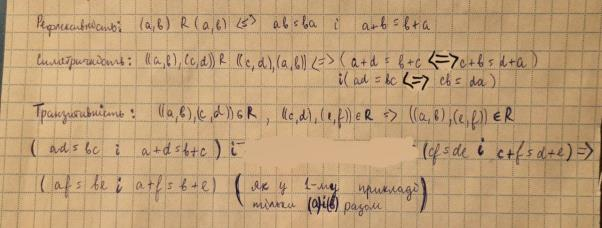 Рефлексивність: (a,b) R (a,b) <=> ab=ba і a+b=b+a
Симетричність: ((a,b),(c,d)) R ((c,d),(a,b)) <=> (a+d = b+c <=> c+b=d+a)
і(ad=bc <=> cb=da)
Транзитивність: ((a,b),(c,d))∈R, ((c,d),(e,f))∈R => ((a,b),(e,f))∈R
(ad=bc і a+d=b+c) і (cf=de і c+f=d+e) =>
(af=be і a+f=b+e) (як у 1-му прикладі
тільки (а)і(б) разом)